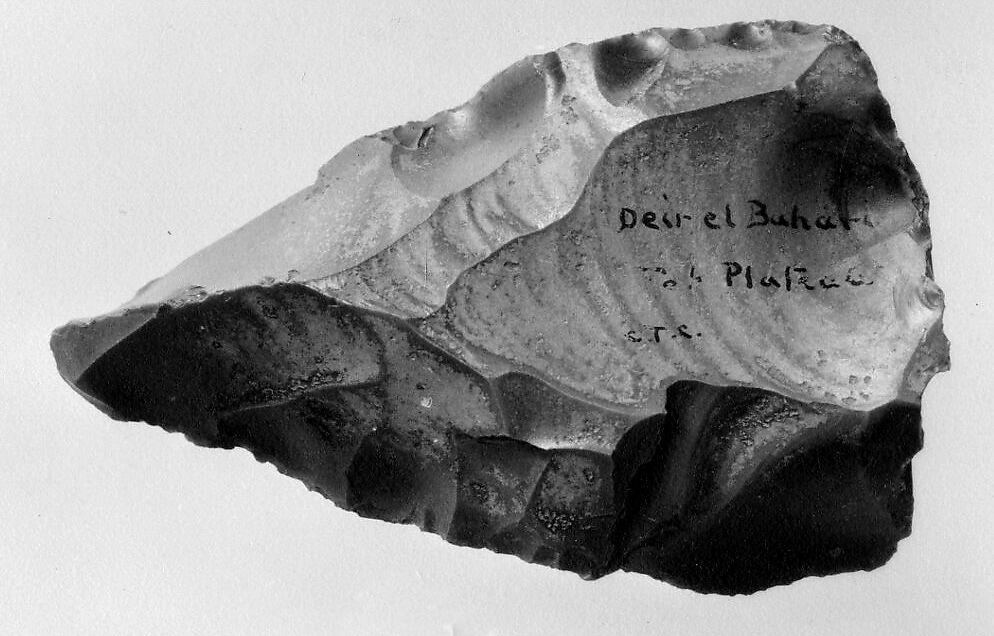 Deir el Bahari
Top Plateau
C.T.C.